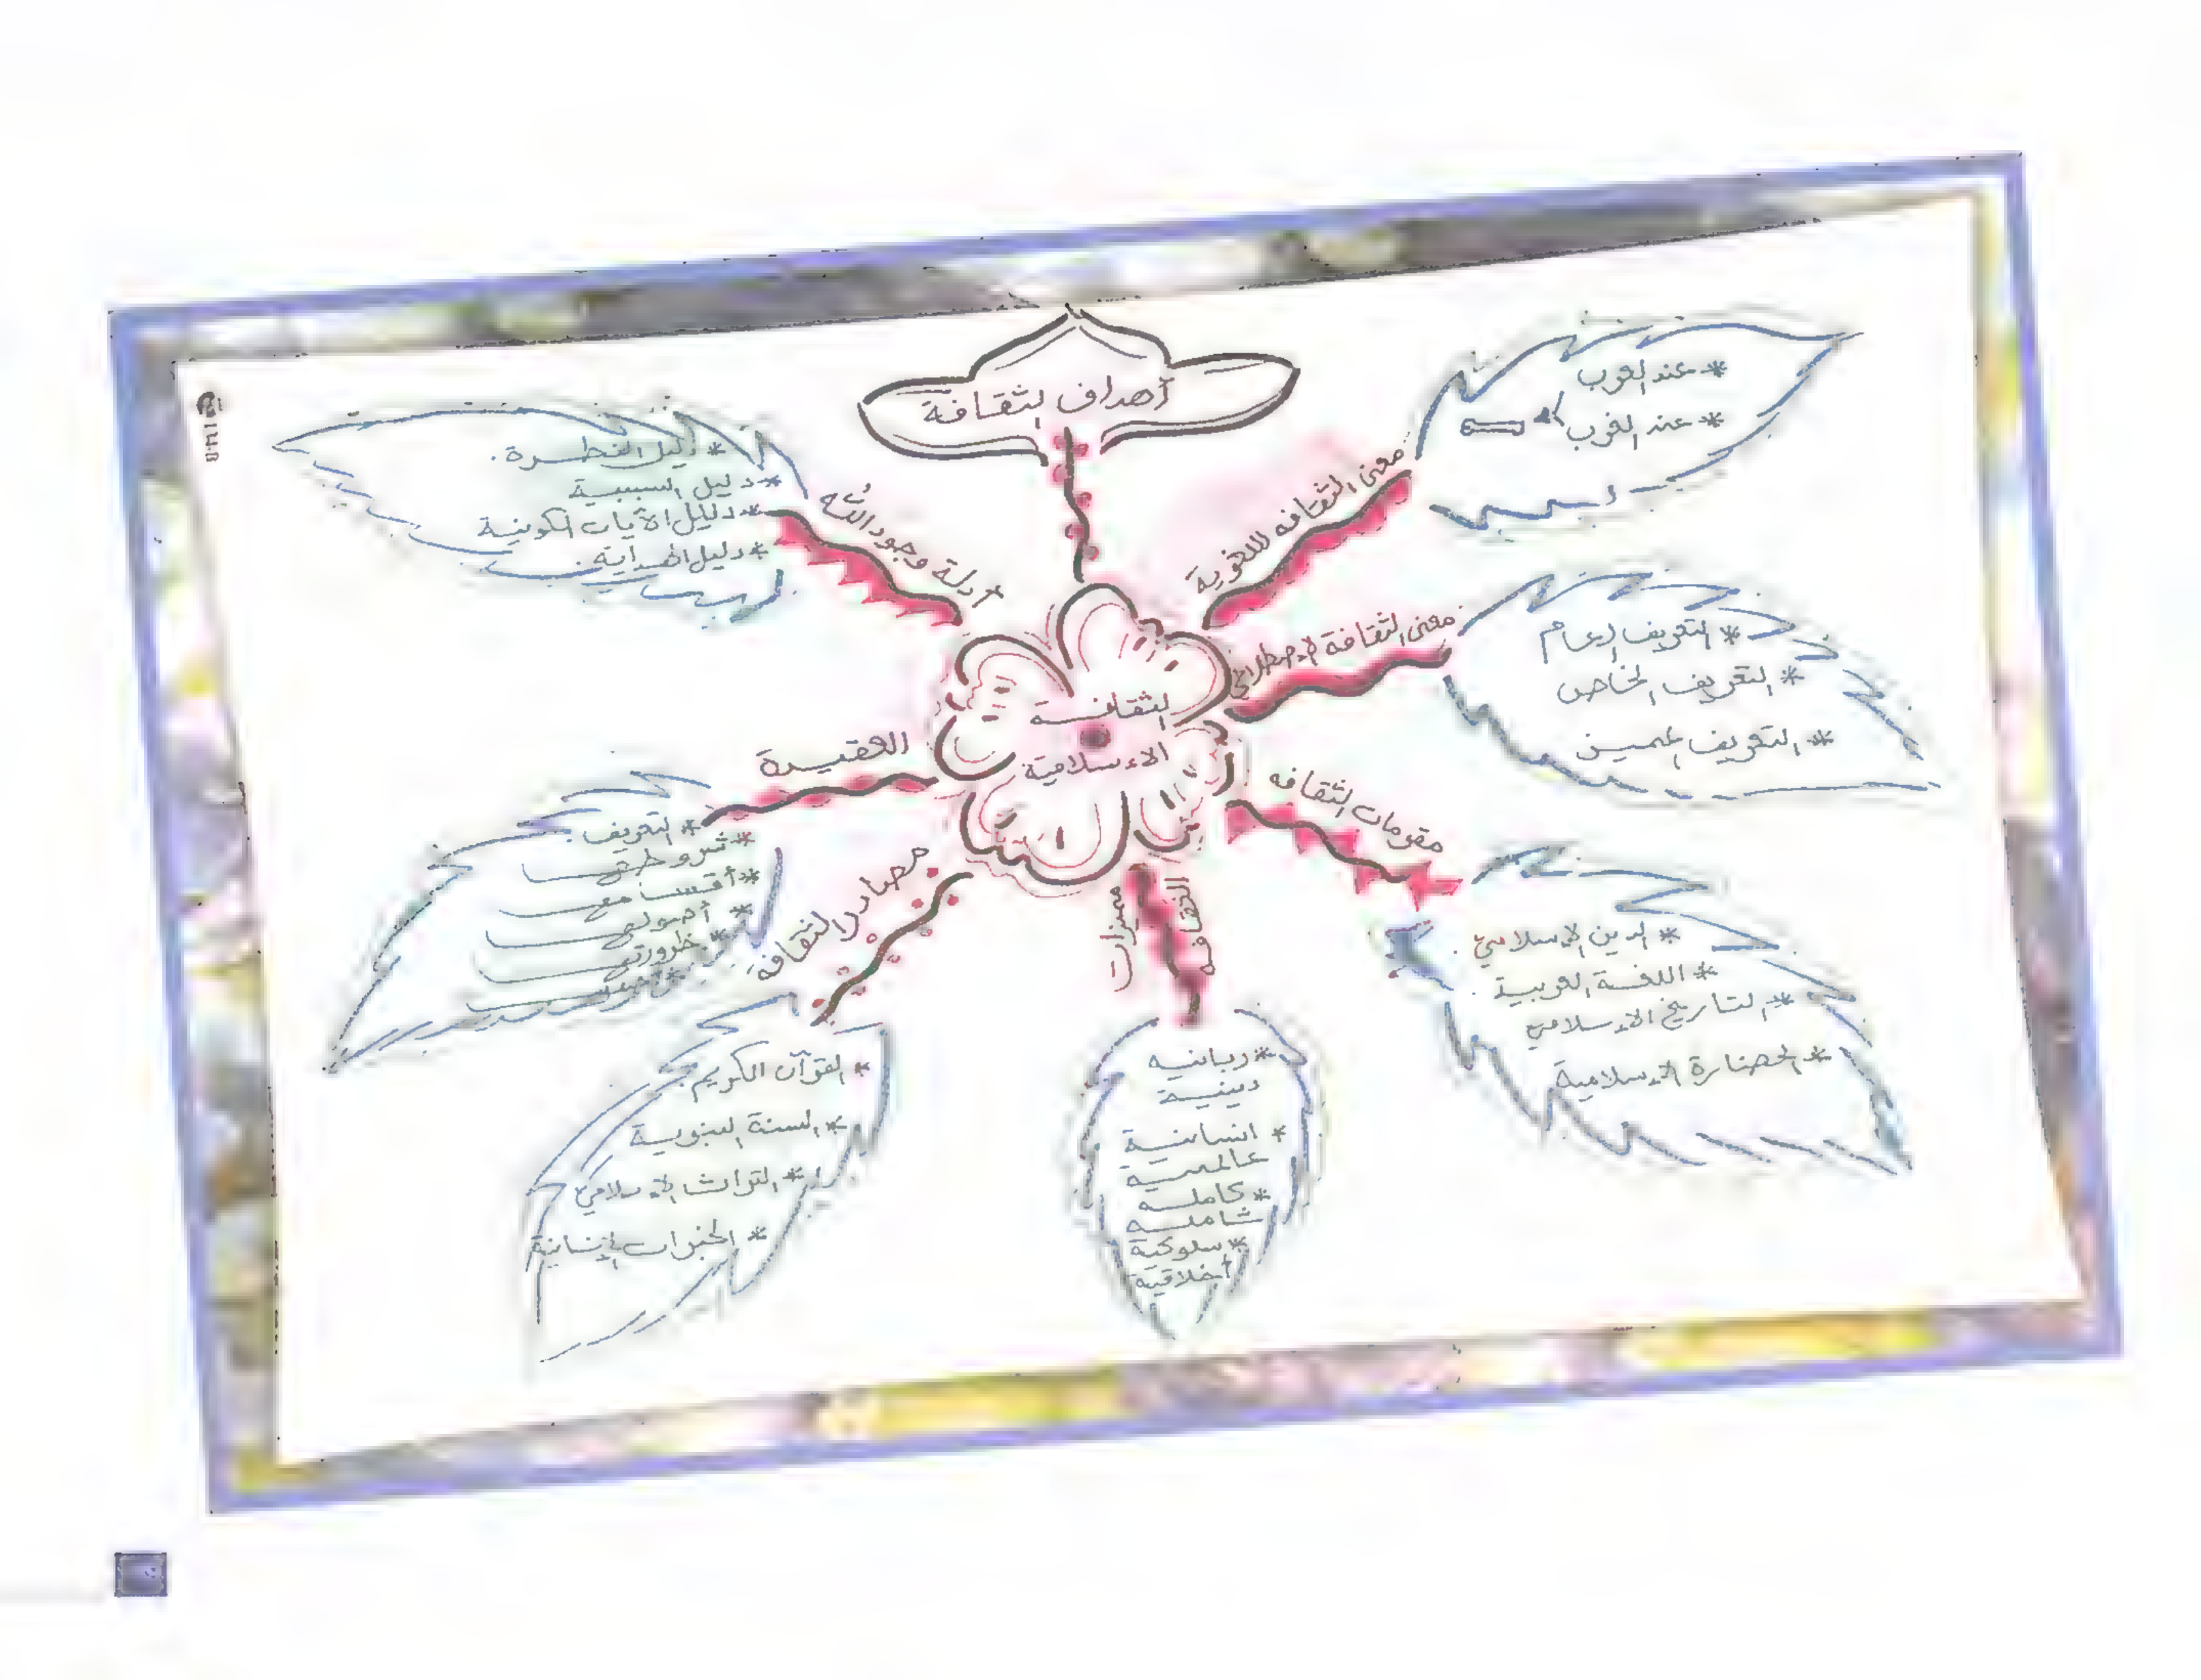 أهداف الثقافة
الثقافة
الاسلامية
معنى الثقافه اللغوية
* عند العرب
* عند الغرب
معنى الثقافة الإصطلاحي
* التعريف العام
* التعريف الخاص
* التعريف
مقومات الثقافه
* الدين الإسلامي
* اللغة العربية
* التاريخ الاسلامي
* الحضارة الاسلامية
مميزات
الثقافه
* ربانيه
دينية
* انسانية
عالمية
* كامله
شامله
* سلوكية
أخلاقية
مصادر الثقافة
* القرآن الكريم
* السنة النبوية
* التراث الإسلامي
* الخبرات الإنسانية
العقيدة
* التعريف
* شروطها
* أقسامها
* أصولها
أدلة وجود الله
* دليل الفطرة.
* دليل السببية
* دليل الآيات الكونية
* دليل الهداية.